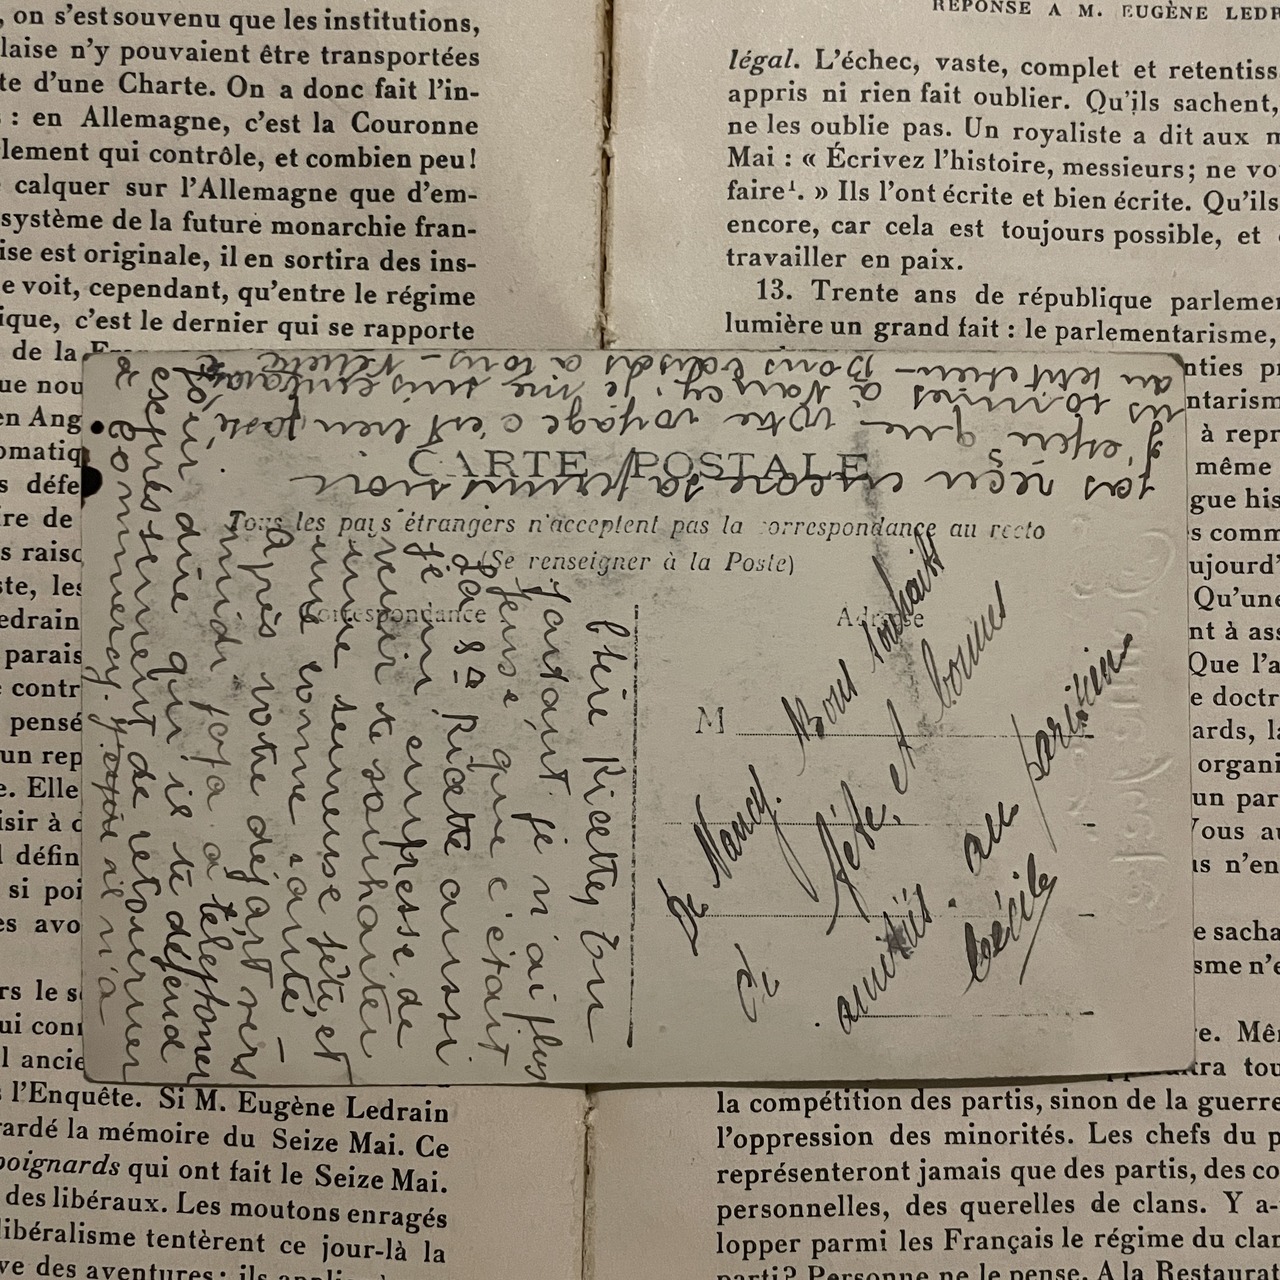 , on s'est souvenu que les institutions,
laise n'y pouvaient être transportées
te d'une Charte. On a donc fait l'in-
: en Allemagne, c'est la Couronne
lement qui contrôle, et combien peu!
calquer sur l'Allemagne que d'em-
système de la future monarchie fran-
ise est originale, il en sortira des ins-
e voit, cependant, qu'entre le régime
ique, c'est le dernier qui se rapporte
de la
ue nou
en Ang
omatiq
s défe
ire de
s raiso
ste, les
edrain
parais
contr
pensé
un rep
e. Elle
isir à c
l défin
si poi
es avo
rs le s
ui con
l ancie
l'Enquête. Si M. Eugène Ledrain
ardé la mémoire du Seize Mai. Ce
poignards qui ont fait le Seize Mai.
des libéraux. Les moutons enragés
libéralisme tentèrent ce jour-là la
ve des aventures; ils
RÉPONSE A M. EUGÈNE LEDR
légal. L'échec, vaste, complet et retentiss
appris ni rien fait oublier. Qu'ils sachent,
ne les oublie pas. Un royaliste a dit aux m
Mai : « Écrivez l'histoire, messieurs; ne vo
faire¹. » Ils l'ont écrite et bien écrite. Qu'ils
encore, car cela est toujours possible, et
travailler en paix.
13. Trente ans de république parleme
lumière un grand fait : le parlementarisme,
nties pr
ntarism
à repr
même
gue his
s comm
ujourd'
Qu'une
nt à ass
Que l'a
e doctr
ards, la
organi
un par
Vous au
s n'en
e sacha
sme n'e
e. Mê
tra tou
la compétition des partis, sinon de la guerre
l'oppression des minorités. Les chefs du p
représenteront jamais que des partis, des co
personnelles, des querelles de clans. Y a-
lopper parmi les Français le régime du clan
parti? Personne ne le pense. A la Restaurat
CARTE POSTALE
Tous les pays étrangers n'acceptent pas la correspondance au recto
(Se renseigner à la Poste)
Correspondance
Adresse
M
Chère Ricette, tu
m'autant je n'ai plus
pensé que c'était
la Ste Ricette aussi
je m'empresse de
venir te souhaiter
une heureuse fête et
une bonne santé,
Après votre départ vers
midi papa a téléphoner
pour dire qu'il te défend
expressément de retourner
à Commercy. il n'a
pas reçu encore sa permission
J'espère que votre voyage c'est bien passé
à Nancy. Je me suis embarassé
au petit chien - Bons baisers à tous -
De Nancy. Bons souhaits
de fête. et bonnes
amitiés. au parisien
Cécile